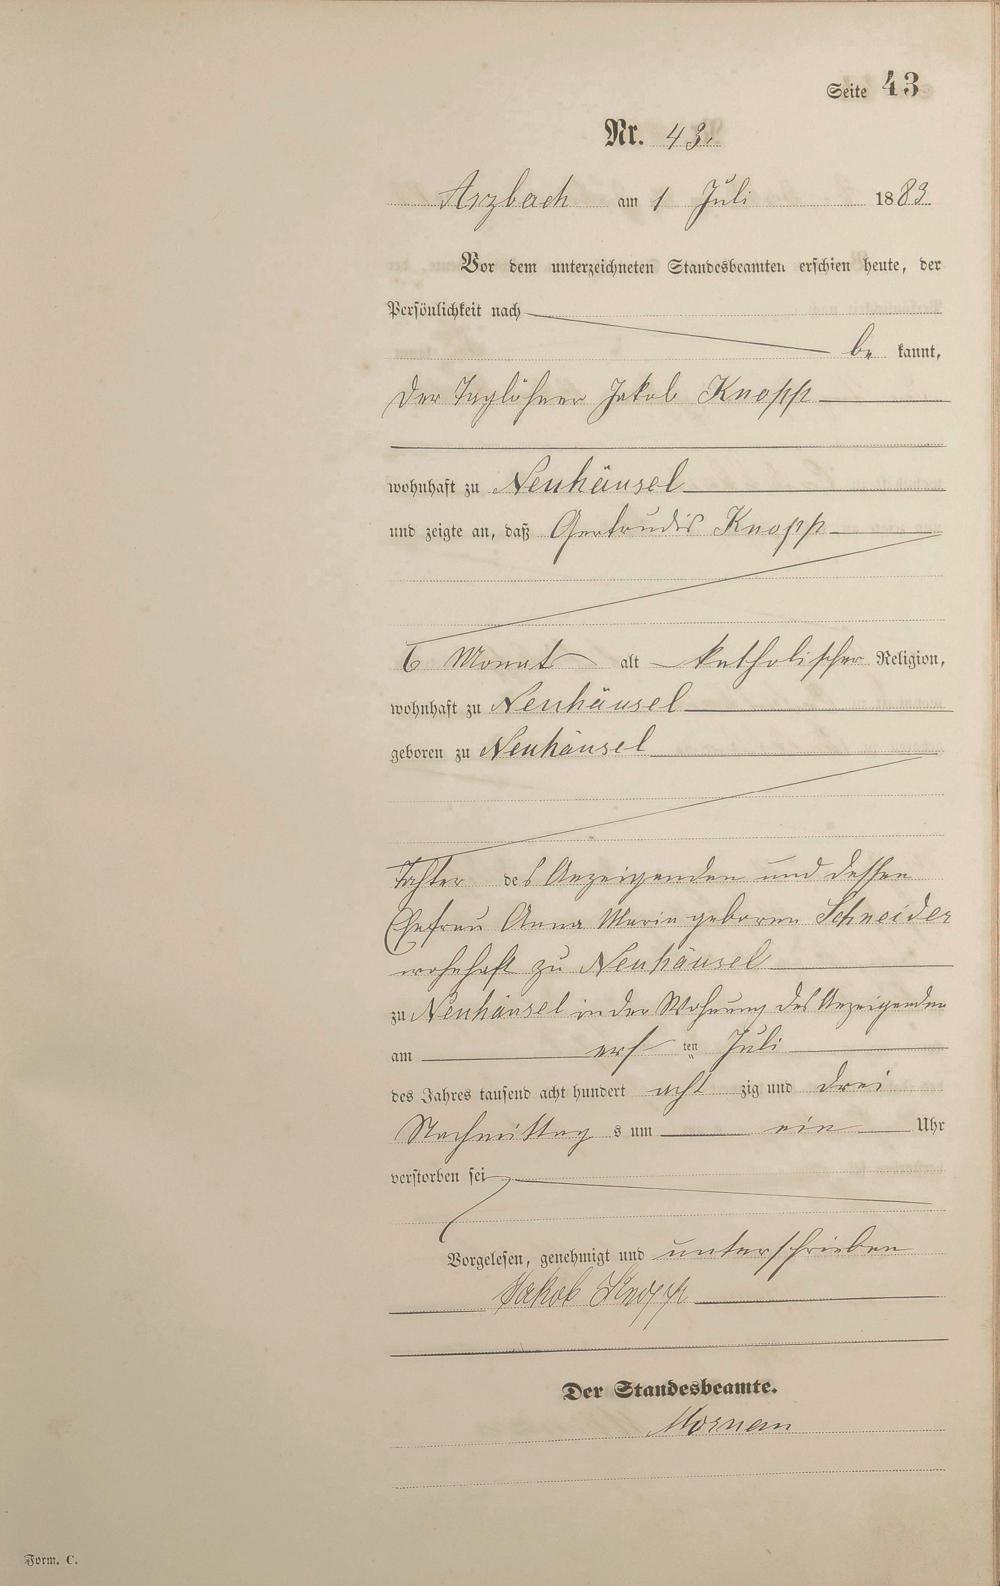 Seite 43
Nr. 43.
Arzbach am 1 Juli 1883
Vor dem unterzeichneten Standesbeamten erschien heute, der
Persönlichkeit nach
be kannt,
der Taglöhner Jakob Knopp
wohnhaft zu Neuhäusel
und zeigte an, daß Gertrudis Knopp
6 Monat alt katholischer Religion,
wohnhaft zu Neuhäusel
geboren zu Neuhäusel
Tochter des Anzeigenden und dessen
Ehefrau Anna Maria geboren Schneider
wohnhaft zu Neuhäusel
zu Neuhäusel in der Wohnung des Anzeigenden
am ersten Juli
des Jahres tausend acht hundert acht zig und drei
Nachmittag s um ein Uhr
verstorben sei
Vorgelesen, genehmigt und unterschrieben
Jakob Knopp
Der Standesbeamte.
Form. C.